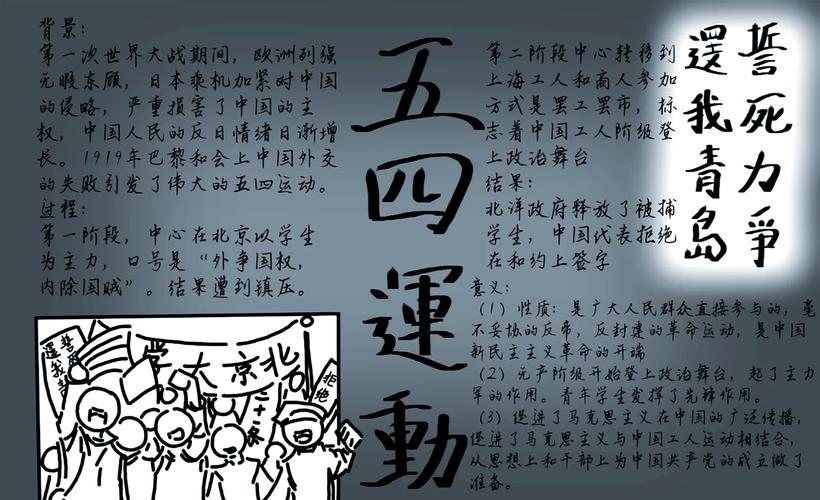 背景：
第一次世界大战期间，欧洲列强
无暇东顾，日本乘机加紧对中国
的侵略，严重损害了中国的主
权，中国人民的反日情绪日渐增
长。1919年巴黎和会上中国外交
的失败引发了伟大的五四运动。
过程：
第一阶段，中心在北京以学生
为主力，口号是“外争国权，
内除国贼”。结果遭到镇压。
五四運動
第二阶段中心转移到
上海工人和商人参加
方式是罢工罢市，标
志着中国工人阶级登
上政治舞台
结果：
北洋政府释放了被捕
学生，中国代表拒绝
在和约上签字
意义：
（1）性质：是广大人民群众直接参与的，毫
不妥协的反帝，反封建的革命运动，是中国
新民主主义革命的开端
（2）无产阶级开始登上政治舞台，起了主力
军的作用。青年学生发挥了先锋作用。
（3）促进了马克思主义在中国的广泛传播，
促进了马克思主义与中国工人运动相结合，
从思想上和干部上为中国共产党的成立做了
准备。
誓死力爭
還我青岛
北京大學
誓死
還我青
拒绝
二十一条